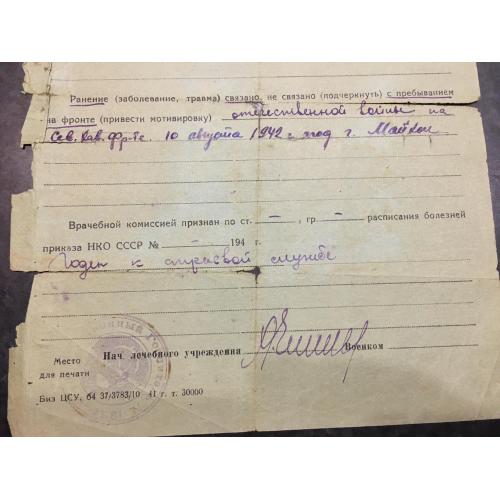 Ранение (заболевание, травма) связано, не связано (подчеркнуть) с пребыванием
на фронте (привести мотивировку) отечественной войны на
Сев. Кав. фр-те. 10 августа 1942 г. под г. Майкоп
Врачебной комиссией признан по ст. – , гр. – расписания болезней
приказа НКО СССР № – 194 г.
Годен к строевой службе
Место
для печати
Нач. лечебного учреждения
Военком
Биз ЦСУ, 64 37/3783/10 41 г. т. 30000